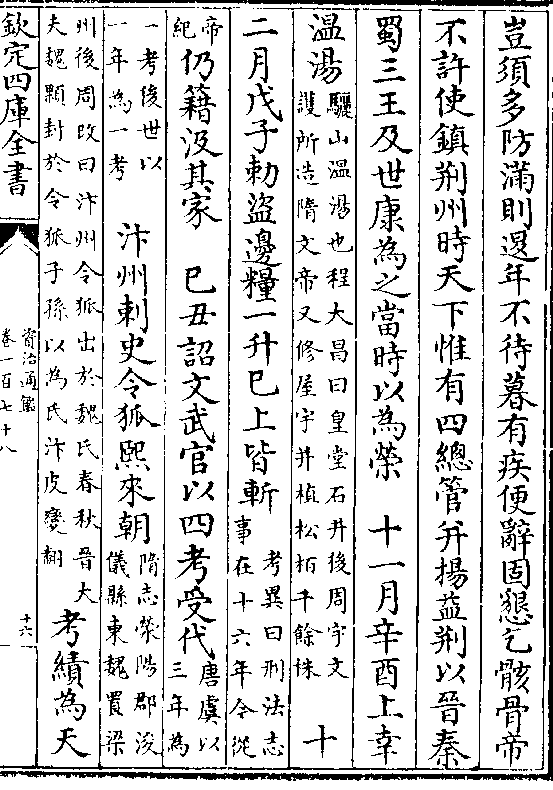 豈須多防滿則退年不待暮有疾便辭固懇乞骸骨帝
不許使鎮荆州時天下惟有四總管并揚益荆以晉秦
蜀三王及世康為之當時以為榮　十一月辛酉上幸
溫湯
驪山温湯也程大昌曰皇堂石井後周宇文
護所造隋文帝又修屋宇并植松栢千餘株
十
二月戊子勅盜邊糧一升已上皆斬
考異曰刑法志
事在十六年令從
帝
紀
仍籍没其家　已丑詔文武官以四考受代
唐虞以
三年為
一考後世以
一年為一考
汴州刺史令狐熙來朝
隋志滎陽郡浚
儀縣東魏置梁
州後周改曰汴州令狐出於魏氏春秋晉大
夫魏顆封於令狐子孫以為氏汴皮變翻
考績為天
欽定四庫全書
資治通鑑
卷一百七十八
十六